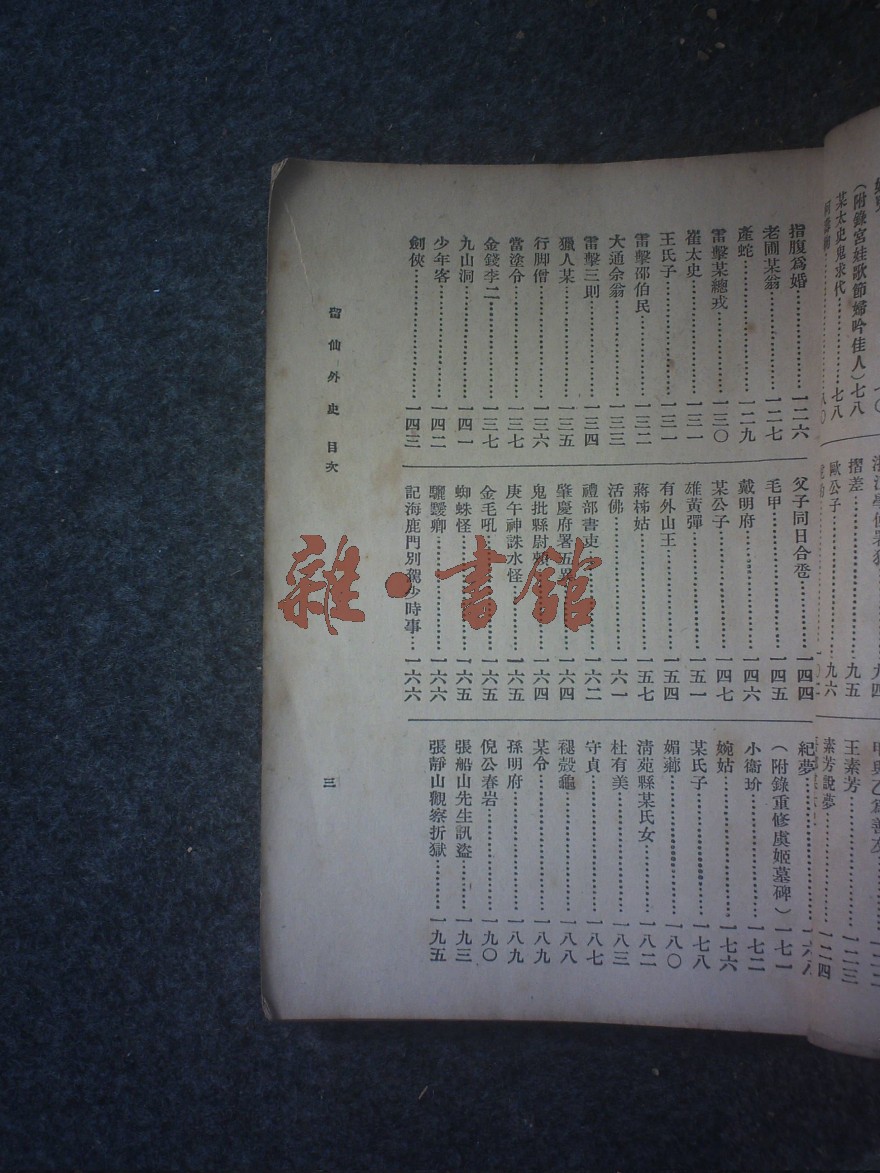 (附錄宮娃歌節婦吟佳人)七八
某太史鬼求代………七八
摺差………九五
歐公子………九六
王素芳………一二三
素芳說夢………一二四
指腹爲婚………一二六
老圃某翁………一二七
產蛇………一二九
雷擊某總戎………一三〇
崔太史………一三一
王氏子………一三一
雷擊邵伯民………一三二
大通余翁………一三三
雷擊三則………一三四
獵人某………一三五
行脚僧………一三六
當塗令………一三七
金錢李二………一三七
九山洞………一四一
少年客………一四二
劍俠………一四三
父子同日合卺………一四四
毛甲………一四五
戴明府………一四六
某公子………一四七
雄黃彈………一五一
有外山王………一五四
蔣柹姑………一五七
活佛………一六一
禮部書吏………一六二
肇慶府署五異………一六四
鬼批縣尉頰………一六四
庚午神誅水怪………一六五
金毛吼………一六五
蜘蛛怪………一六五
驪靉卿………一六六
記海鹿門別駕少時事………一六六
紀夢………一六八
(附錄重修虞姬墓碑)一七一
小衞玠………一七二
婉姑………一七六
某氏子………一七八
媚薌………一八〇
清苑縣某氏女………一八二
杜有美………一八三
守貞………一八七
褪殼龜………一八八
某令………一八九
孫明府………一八九
倪公春岩………一九〇
張船山先生訊盜………一九三
張靜山觀察折獄………一九五
留仙外史 目次
三
雜·書館